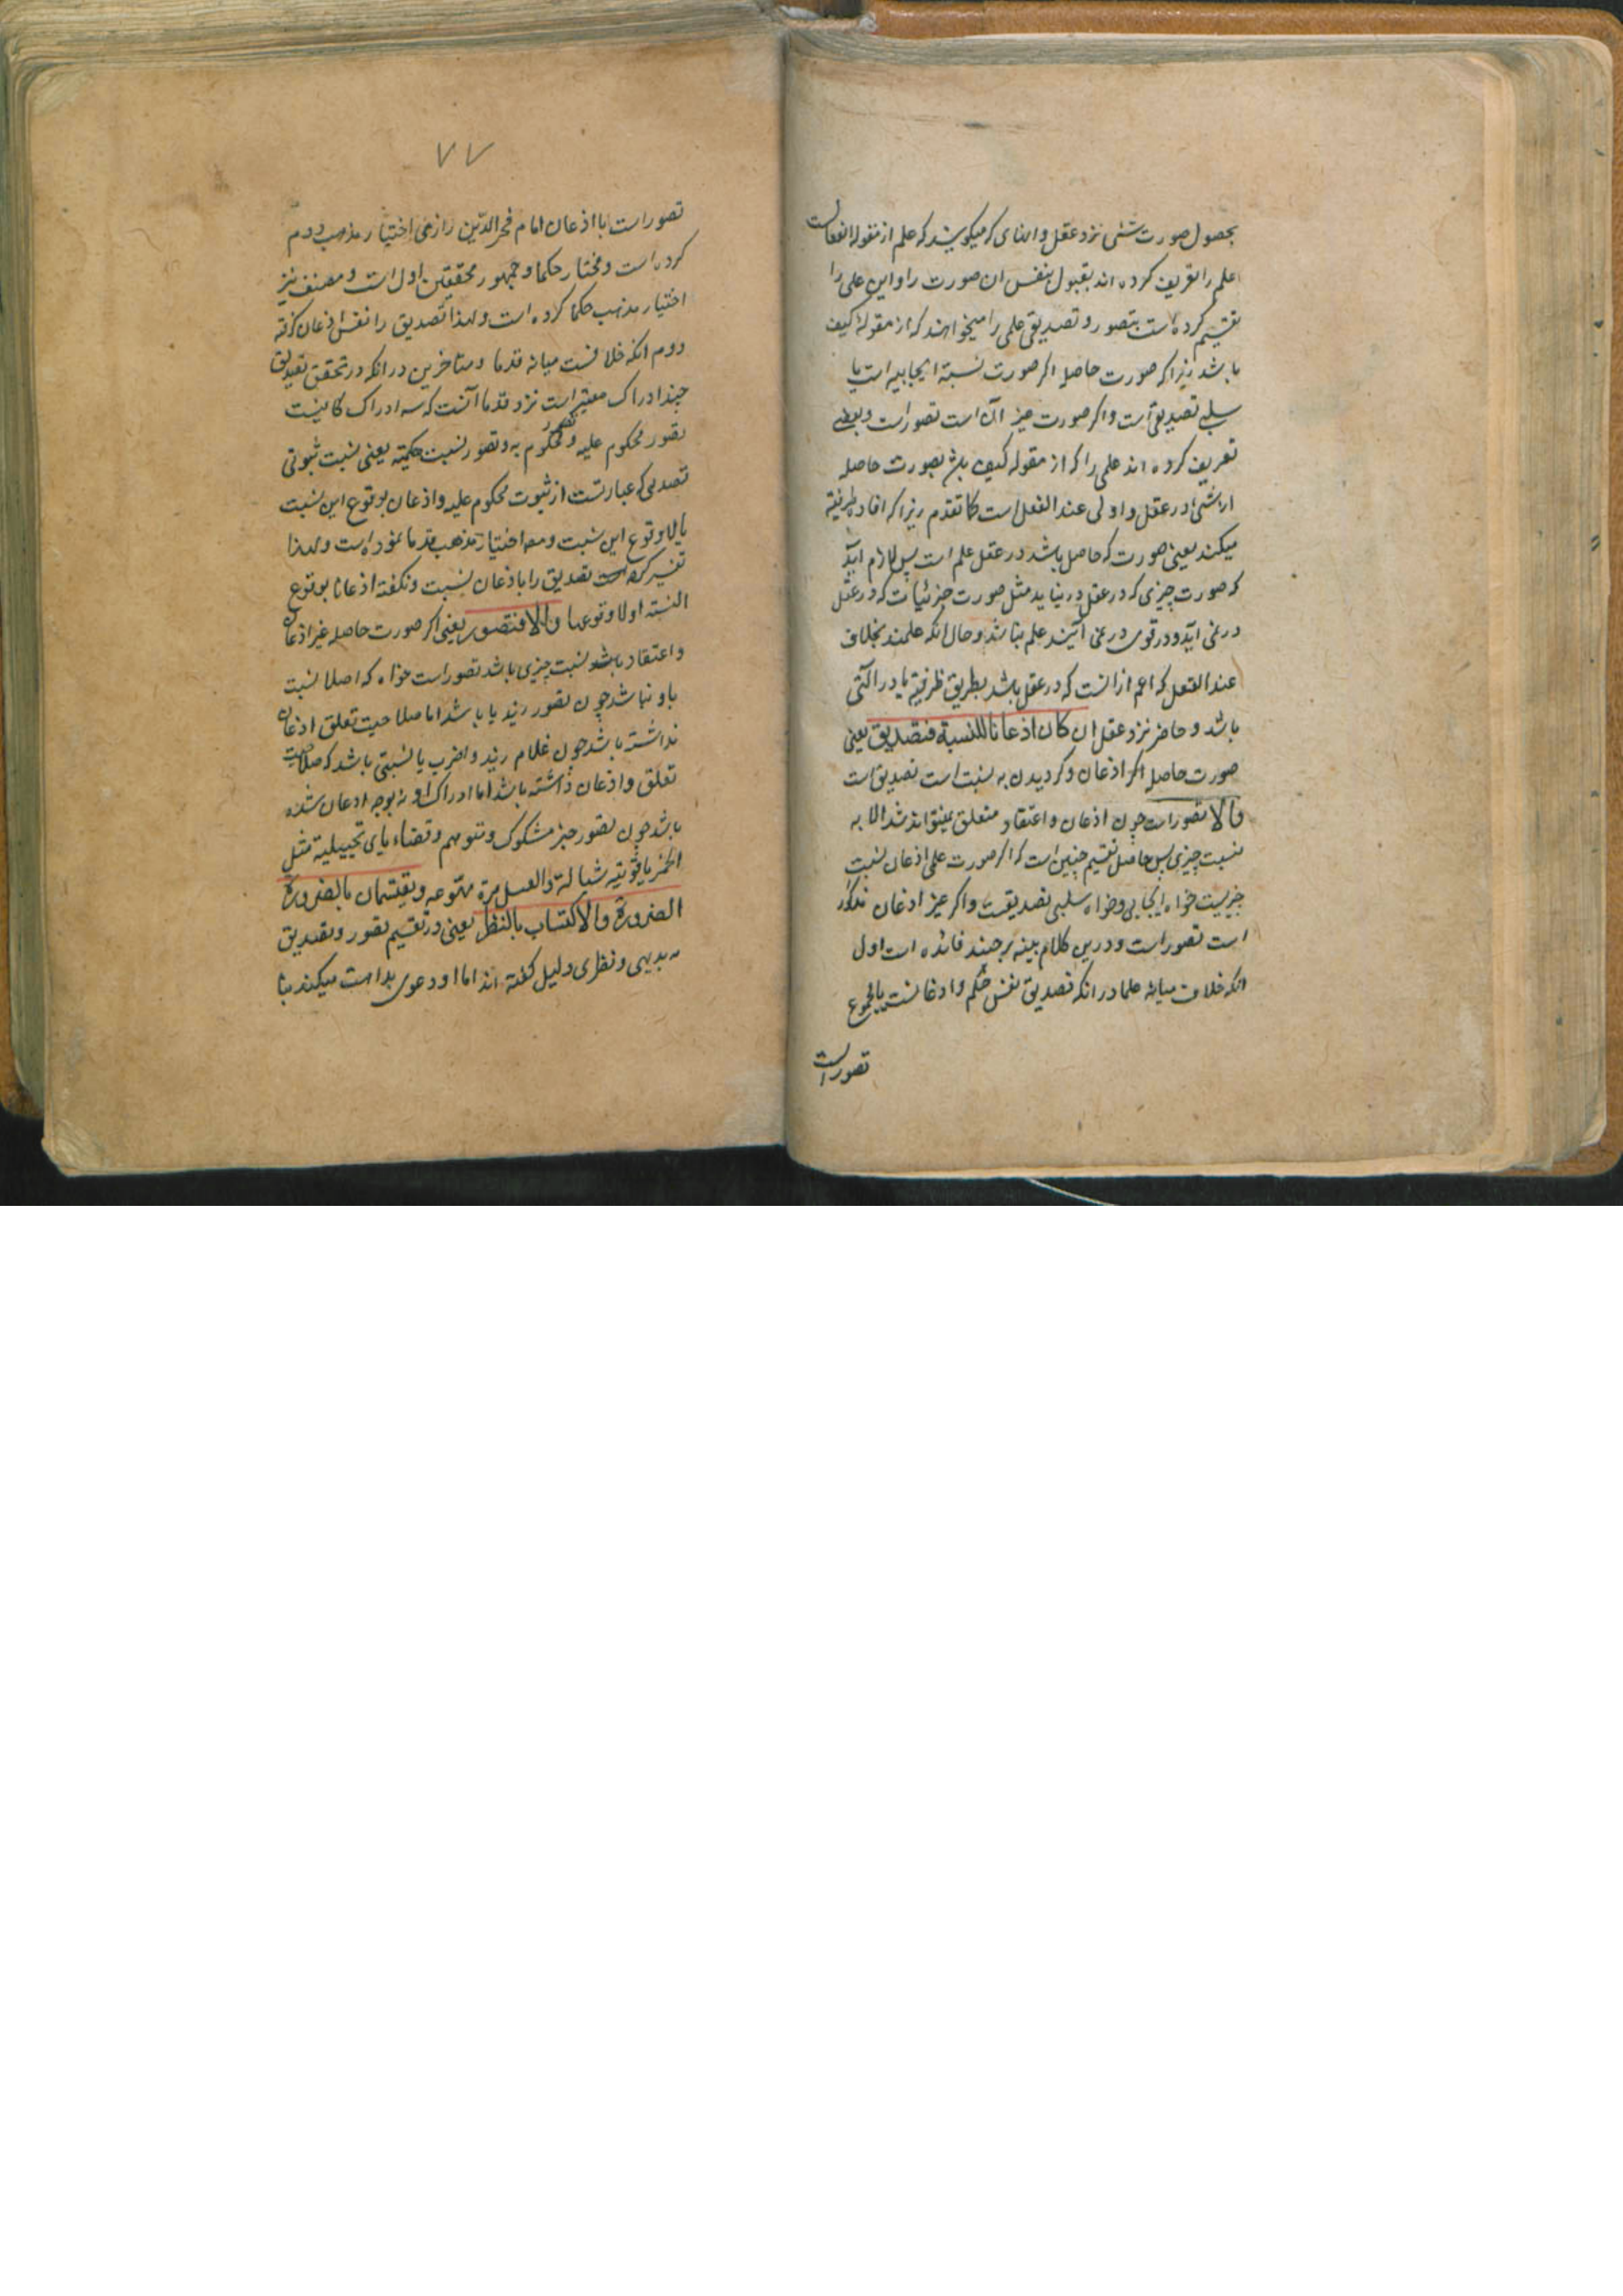 بحصول صورت شئی نزد عقل و انهای که میکویند که علم از مقوله انفعالست
علم را تعریف کرده اند بقبول نفس ان صورت را و این علی را
تقسیم کرده است بتصور و تصدیق علمی را میخواهند که از مقوله کیف
باشد زیرا که صورت حاصله اکر صورت نسبة ایجابیه است یا
سلبی تصدیق است و اکر صورت غیر آن است تصور است و بعضی
تعریف کرده اند علمی را که از مقوله کیف باشد بصورت حاصله
از شئ در عقل و اولی عند العقل است کما تقدم زیرا که افاد ظرفیة
میکند یعنی صورت که حاصل باشد در عقل علم است پس لازم اید
که صورت چیزی که در عقل در نیاید مثل صورت جزئیات که در عقل
در نمی آید و در قوی در می آیند علم نباشد و حال انکه علمند بخلاف
عند العقل که اعم از انست که در عقل باشد بطریق ظرفیة یا در التی
باشد و حاضر نزد عقل ان کان اذعانا للنسبة فتصدیق یعنی
صورت حاصله اکر اذعان و کردیدن به نسبت است تصدیق است
والا تصور است چون اذعان و اعتقاد متعلق نمیتواند شد الا به
نسبت چیزی پس حاصل تقسیم چنین است که اکر صورت علمی اذعان نسبت
چیزیست خواه ایجابی و خواه سلبی تصدیقست و اکر غیر اذعان مذکور
است تصور است و درین کلام بینه بر چند فائده است اول
انکه خلاف میانه علما در انکه تصدیق نفس حکم و اذعانست یا مجموع
تصورات
۷۷
تصور است با اذعان امام فخر الدین رازی اختیار مذهب دوم
کرده است و مختار حکما و جمهور محققین اول است و مصنف نیز
اختیار مذهب حکما کرده است و لهذا تصدیق را نفس اذعان کرفته
دوم انکه خلافست میانه قدما و متاخرین در انکه در تحقق تصدیق
چند ادراک معتبر است نزد قدما آنست که سه ادراک کافیست
تصور محکوم علیه و تصور محکوم به و تصور نسبت حکمیه یعنی نسبت ثبوتی
تصدلی که عبارتست از ثبوت محکوم علیه و اذعان بوقوع این نسبت
یا لا وقوع این نسبت و مص اختیار مذهب قدما نموده است و لهذا
تفسیر کرده است تصدیق را باذعان نسبت و نکفته اذعانا بوقوع
النسبه او لا وقوعها والا فتصور یعنی اکر صورت حاصله غیر اذعان
و اعتقاد باشد نسبت چیزی باشد تصور است خواه که اصلا نسبت
باو نباشد چون تصور زید یا باشد اما صلاحیت تعلق اذعان
نداشته باشد چون غلام زید و اضرب یا نسبتی باشد که صلاحیت
تعلق و اذعان داشته باشد اما ادراک او نه بوجه اذعان شده
باشد چون تصور خبر مشکوک و متوهم و قضاء یای تخییلیة مثل
الخمر یاقوتیه سیالة والعسل مرة مهوعه ویقتسمان بالضرورة
الضرورة والاکتساب بالنظر یعنی در تقسیم تصور و تصدیق
به بدیهی و نظری دلیل کفته اند اما او دعوی بداهت میکند بنا